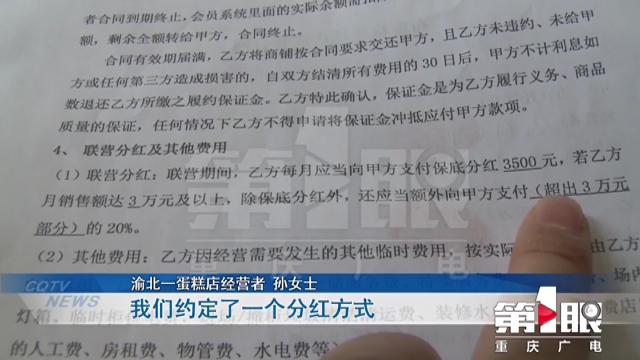 者合同到期终止，会员系统里面的实际余额需扣
额，剩余全额转给甲方，合同终止。
合同有效期届满，乙方将商铺按合同要求交还甲方，且乙方未违约、未给甲
方或任何第三方造成损害的，自双方结清所有费用的 30 日后，甲方不计利息如
数退还乙方所缴之履约保证金。乙方特此确认，保证金是为乙方履行义务、商品
质量的保证，任何情况下乙方不得申请将保证金冲抵应付甲方款项。
4、 联营分红及其他费用
（1）联营分红：联营期间，乙方每月应当向甲方支付保底分红 3500 元，若乙方
月销售额达 3 万元及以上，除保底分红外，还应当额外向甲方支付（超出 3 万元
部分）的 20%。
（2）其他费用：乙方因经营需要发生的其他临时费用，按实际 由乙方
CQTV
NEWS
渝北一蛋糕店经营者 孙女士
我们约定了一个分红方式
第1眼
重庆广电
灯箱、临时
运费、装修
的人工费、房租费、物管费、水电费等